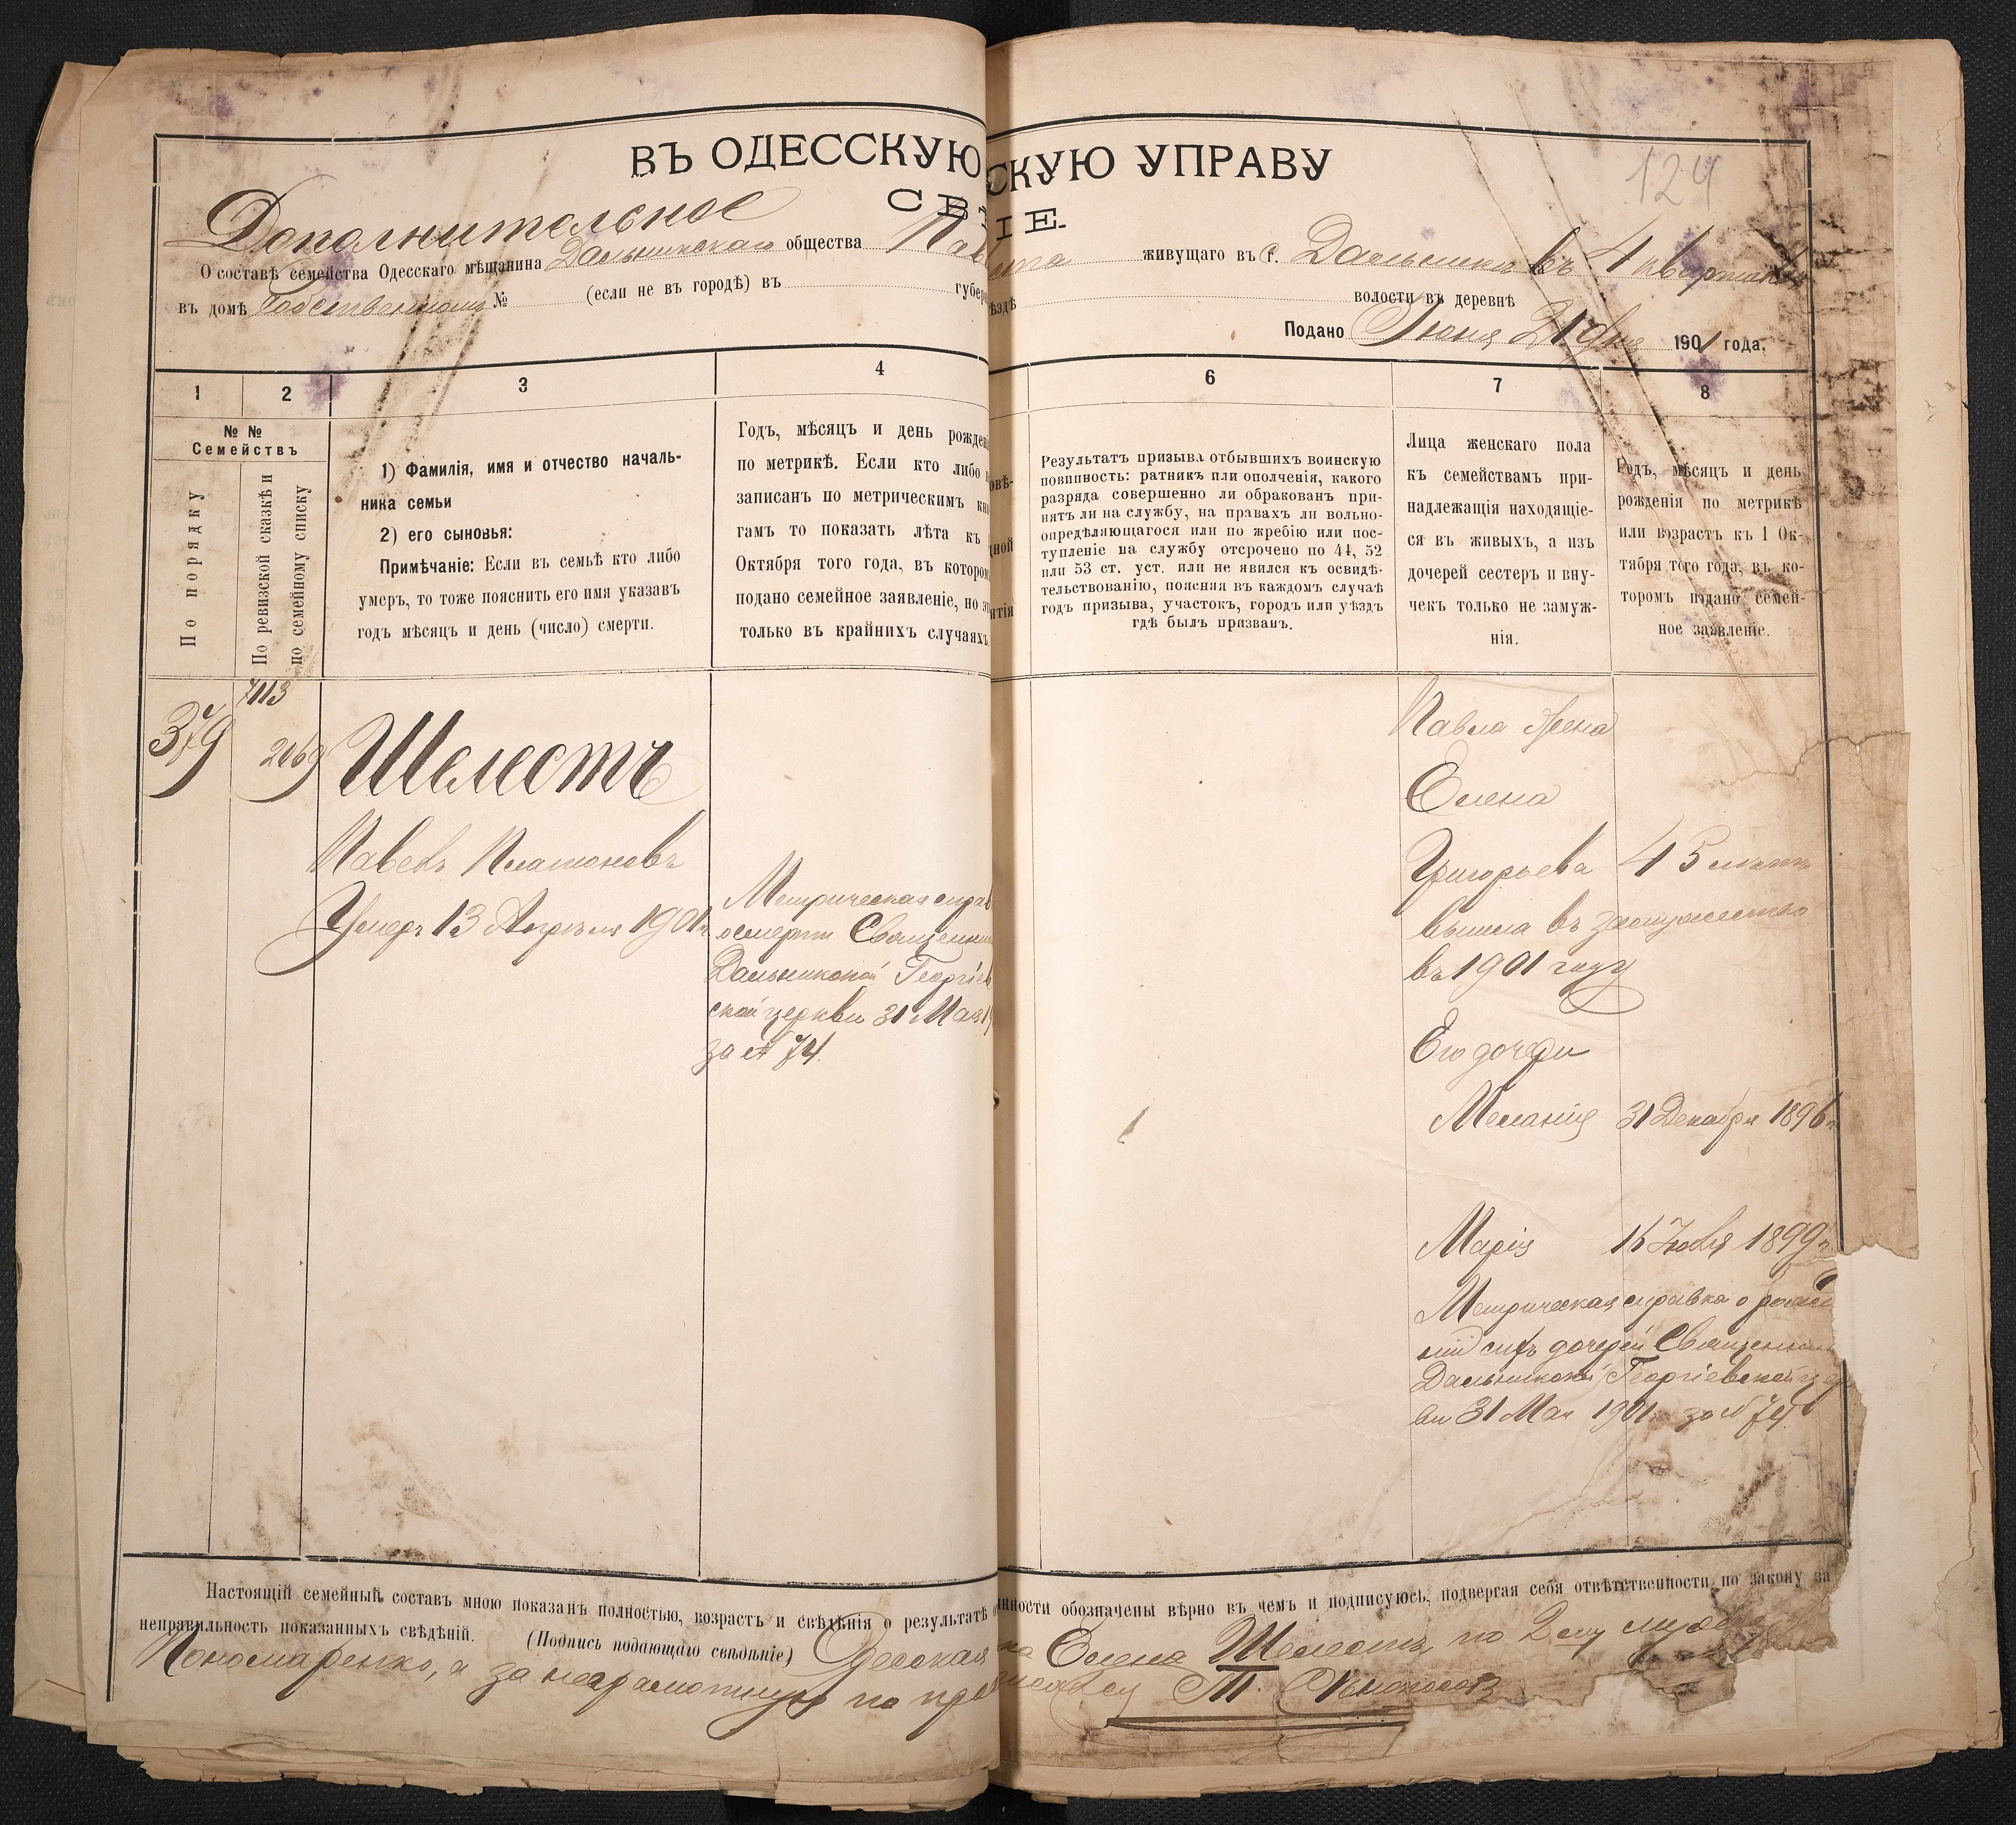 ВЪ ОДЕССКУЮ
СКУЮ УПРАВУ
124
Дополнительное
СВѢ
ІЕ.
О составѣ семейства Одесскаго мѣщанина Дальницкаго общества Пав
живущаго въ с. Дальникъ въ 4 кварталѣ
въ домѣ Собственномъ № (если не въ городѣ) въ губер
ѣздѣ волости въ деревнѣ
Подано Іюня 21 дня 1901 года.
1 2 3 4
6 7 8
№ №
Семействъ
По порядку
По ревизской сказкѣ и
по семейному списку
1) Фамилія, имя и отчество началь-
ника семьи
2) его сыновья:
Примѣчаніе: Если въ семьѣ кто либо
умеръ, то тоже пояснить его имя указавъ
годъ мѣсяцъ и день (число) смерти.
Годъ, мѣсяцъ и день рожден
по метрикѣ. Если кто либо
записанъ по метрическимъ кни
гамъ то показать лѣта къ
Октября того года, въ котором
подано семейное заявленіе, но э
только въ крайнихъ случаяхъ
Результатъ призыва отбывшихъ воинскую
повинность: ратникъ или ополченія, какого
разряда совершенно ли обракованъ при-
нятъ ли на службу, на правахъ ли вольно-
опредѣляющагося или по жребію или пос-
тупленіе на службу отсрочено по 44, 52
или 53 ст. уст. или не явился къ освидѣ-
тельствованію, поясняя въ каждомъ случаѣ
годъ призыва, участокъ, городъ или уѣздъ
гдѣ былъ призванъ.
Лица женскаго пола
къ семействамъ при-
надлежащія находящіе-
ся въ живыхъ, а изъ
дочерей сестеръ и вну-
чекъ только не замуж-
нія.
Годъ, мѣсяцъ и день
рожденія по метрикѣ
или возрастъ къ 1 Ок-
тября того года, въ ко-
торомъ подано семей-
ное заявленіе.
7113
379 2069 Шелестъ
Павелъ Платоновъ
Умеръ 13 Апрѣля 1901 г.
Метрическая справ
о смерти Священни
Дальницкой Георгіев
ской церкви 31 Мая 19
за № 74.
Павла Жена
Елена
Григорьева 45 лѣтъ
вышла въ замужество
въ 1901 году
Его дочери
Меланія 31 Декабря 1896 г.
Марія 16 Іюля 1899 г.
Метрическая справка о рожде
ніи сихъ дочерей Священник
Дальницкой Георгіевской цер
ви 31 Мая 1901 г. за № 74.
Настоящій семейный составъ мною показанъ полностью, возрастъ и свѣдѣнія о результатѣ
нности обозначены вѣрно въ чемъ и подписуюсь, подвергая себя отвѣтственности по закону за
неправильность показанныхъ свѣдѣній. (Подпись подающаго свѣдѣніе) Одесская
Елена Шелестъ по 2му мужу
Пономаренко, а за неграмотную по про